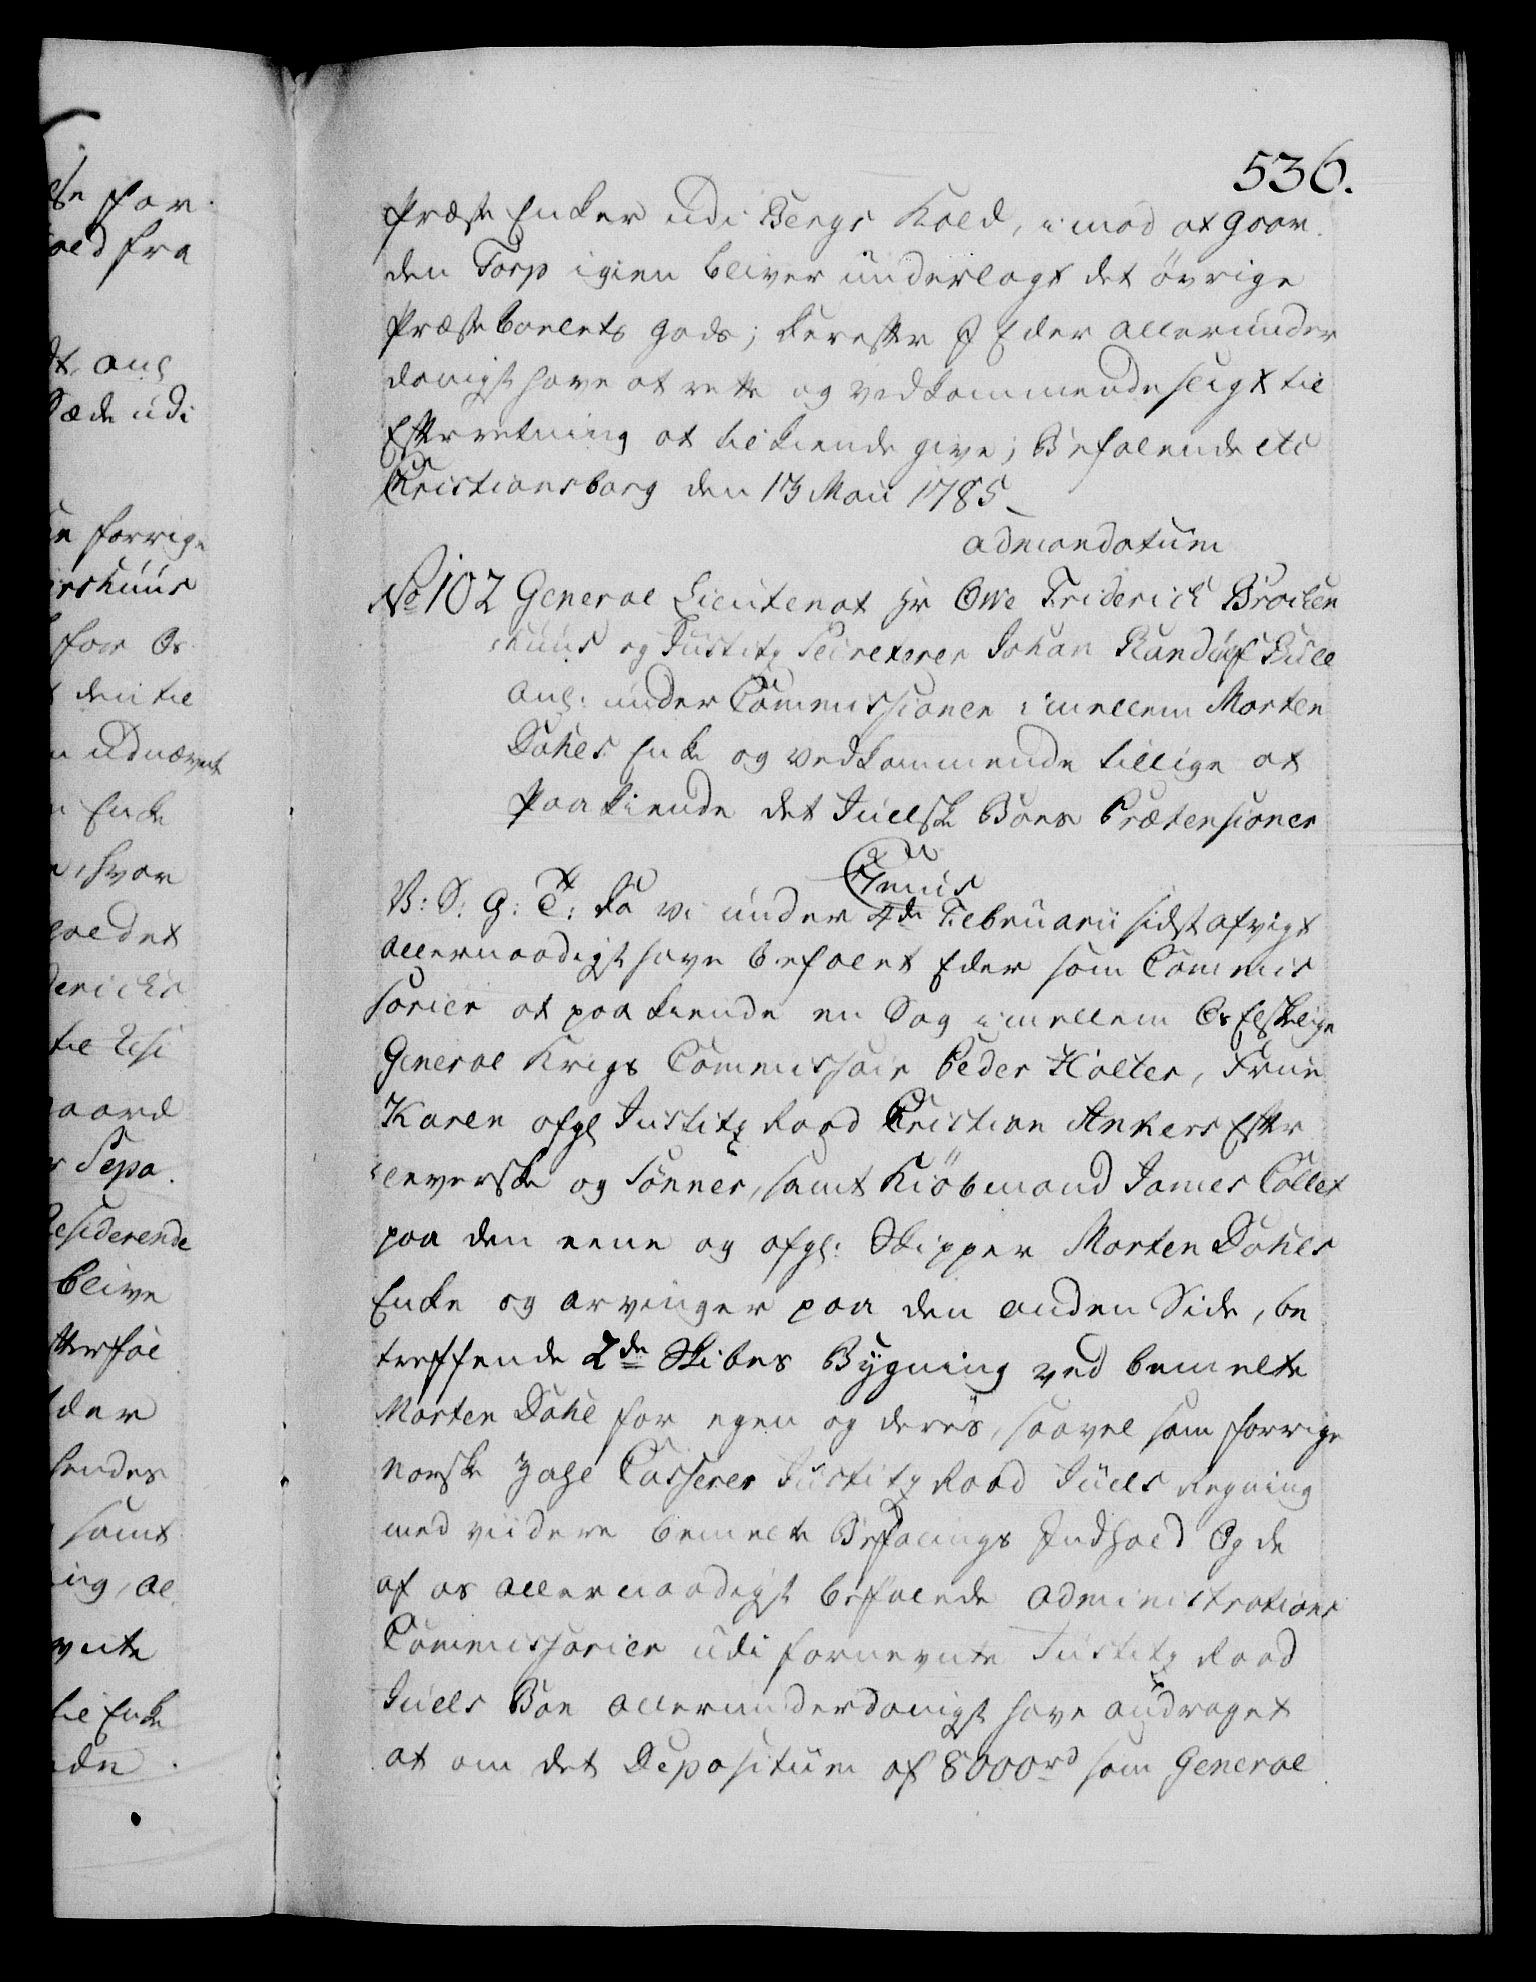 536.
Præste Enker udi Bergs Kald, imod at Gaar
den Torp igien bliver underlagt det övrige
Præsteboelets gods; Derefter I Eder allerunder
danigst have at rette og vedkommende sligt til
Efterretning at tilkiende give; Befalende etc
Christiansborg den 13 Maii 1785
ad mandatum
No 102 General Lieutenat Hr Owe Friderich Brocken
huus og Justitz Secreterer Johan Randulf Bull
ang: under Commissionen imellem Morten
Dahls Enke og vedkommende tillige at
paakiende det Juelske Boes Prætensioner
Cr 7mus
V: S: G: T: Da vi under 4de Februarii sidst afvigt
allernaadigst have befalet Eder som Commis
sarier at paakiende en Sag imellem Os Elskelige
General Krigs Commissair Peder Holter, Frue
Karen afgl Justitz Raad Christian Ankers Efter
leverske og Sönner, samt Kiöbmand James Collet
paa den eene og afgl: Skipper Morten Dahls
Enke og arvinger paa den anden Side, be
treffende 2de Skibes Bygning ved bemelte
Morten Dahl for egen og deres, saavel som forrige
norske Zahl Casserer Justitz Raad Juels Regning
med viidere bemelte Befalings Indhold Og de
af os allernaadigst befalede Administrations
Commissarier udi fornevnte Justitz Raad
Juels Boe allerunderdanigst have andraget
at om det Depositum af 8000rd som General
se for
old fra
ang
Sæde udi
forrige
huus
for Os
den til
udnævnt
Enke
hvor
det
derichs
til
gaard
Sepa
Residerende
blive
der
hendes
samt
ing, al
til Enke